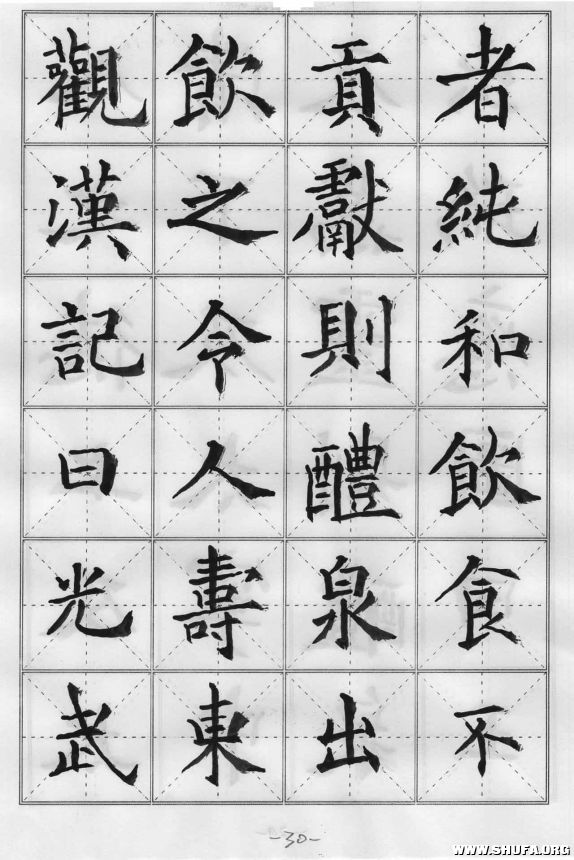 者純和飲食不
貢獻則醴泉出
飲之令人壽東
觀漢記曰光武
-30-
WWW.SHUFA.ORG